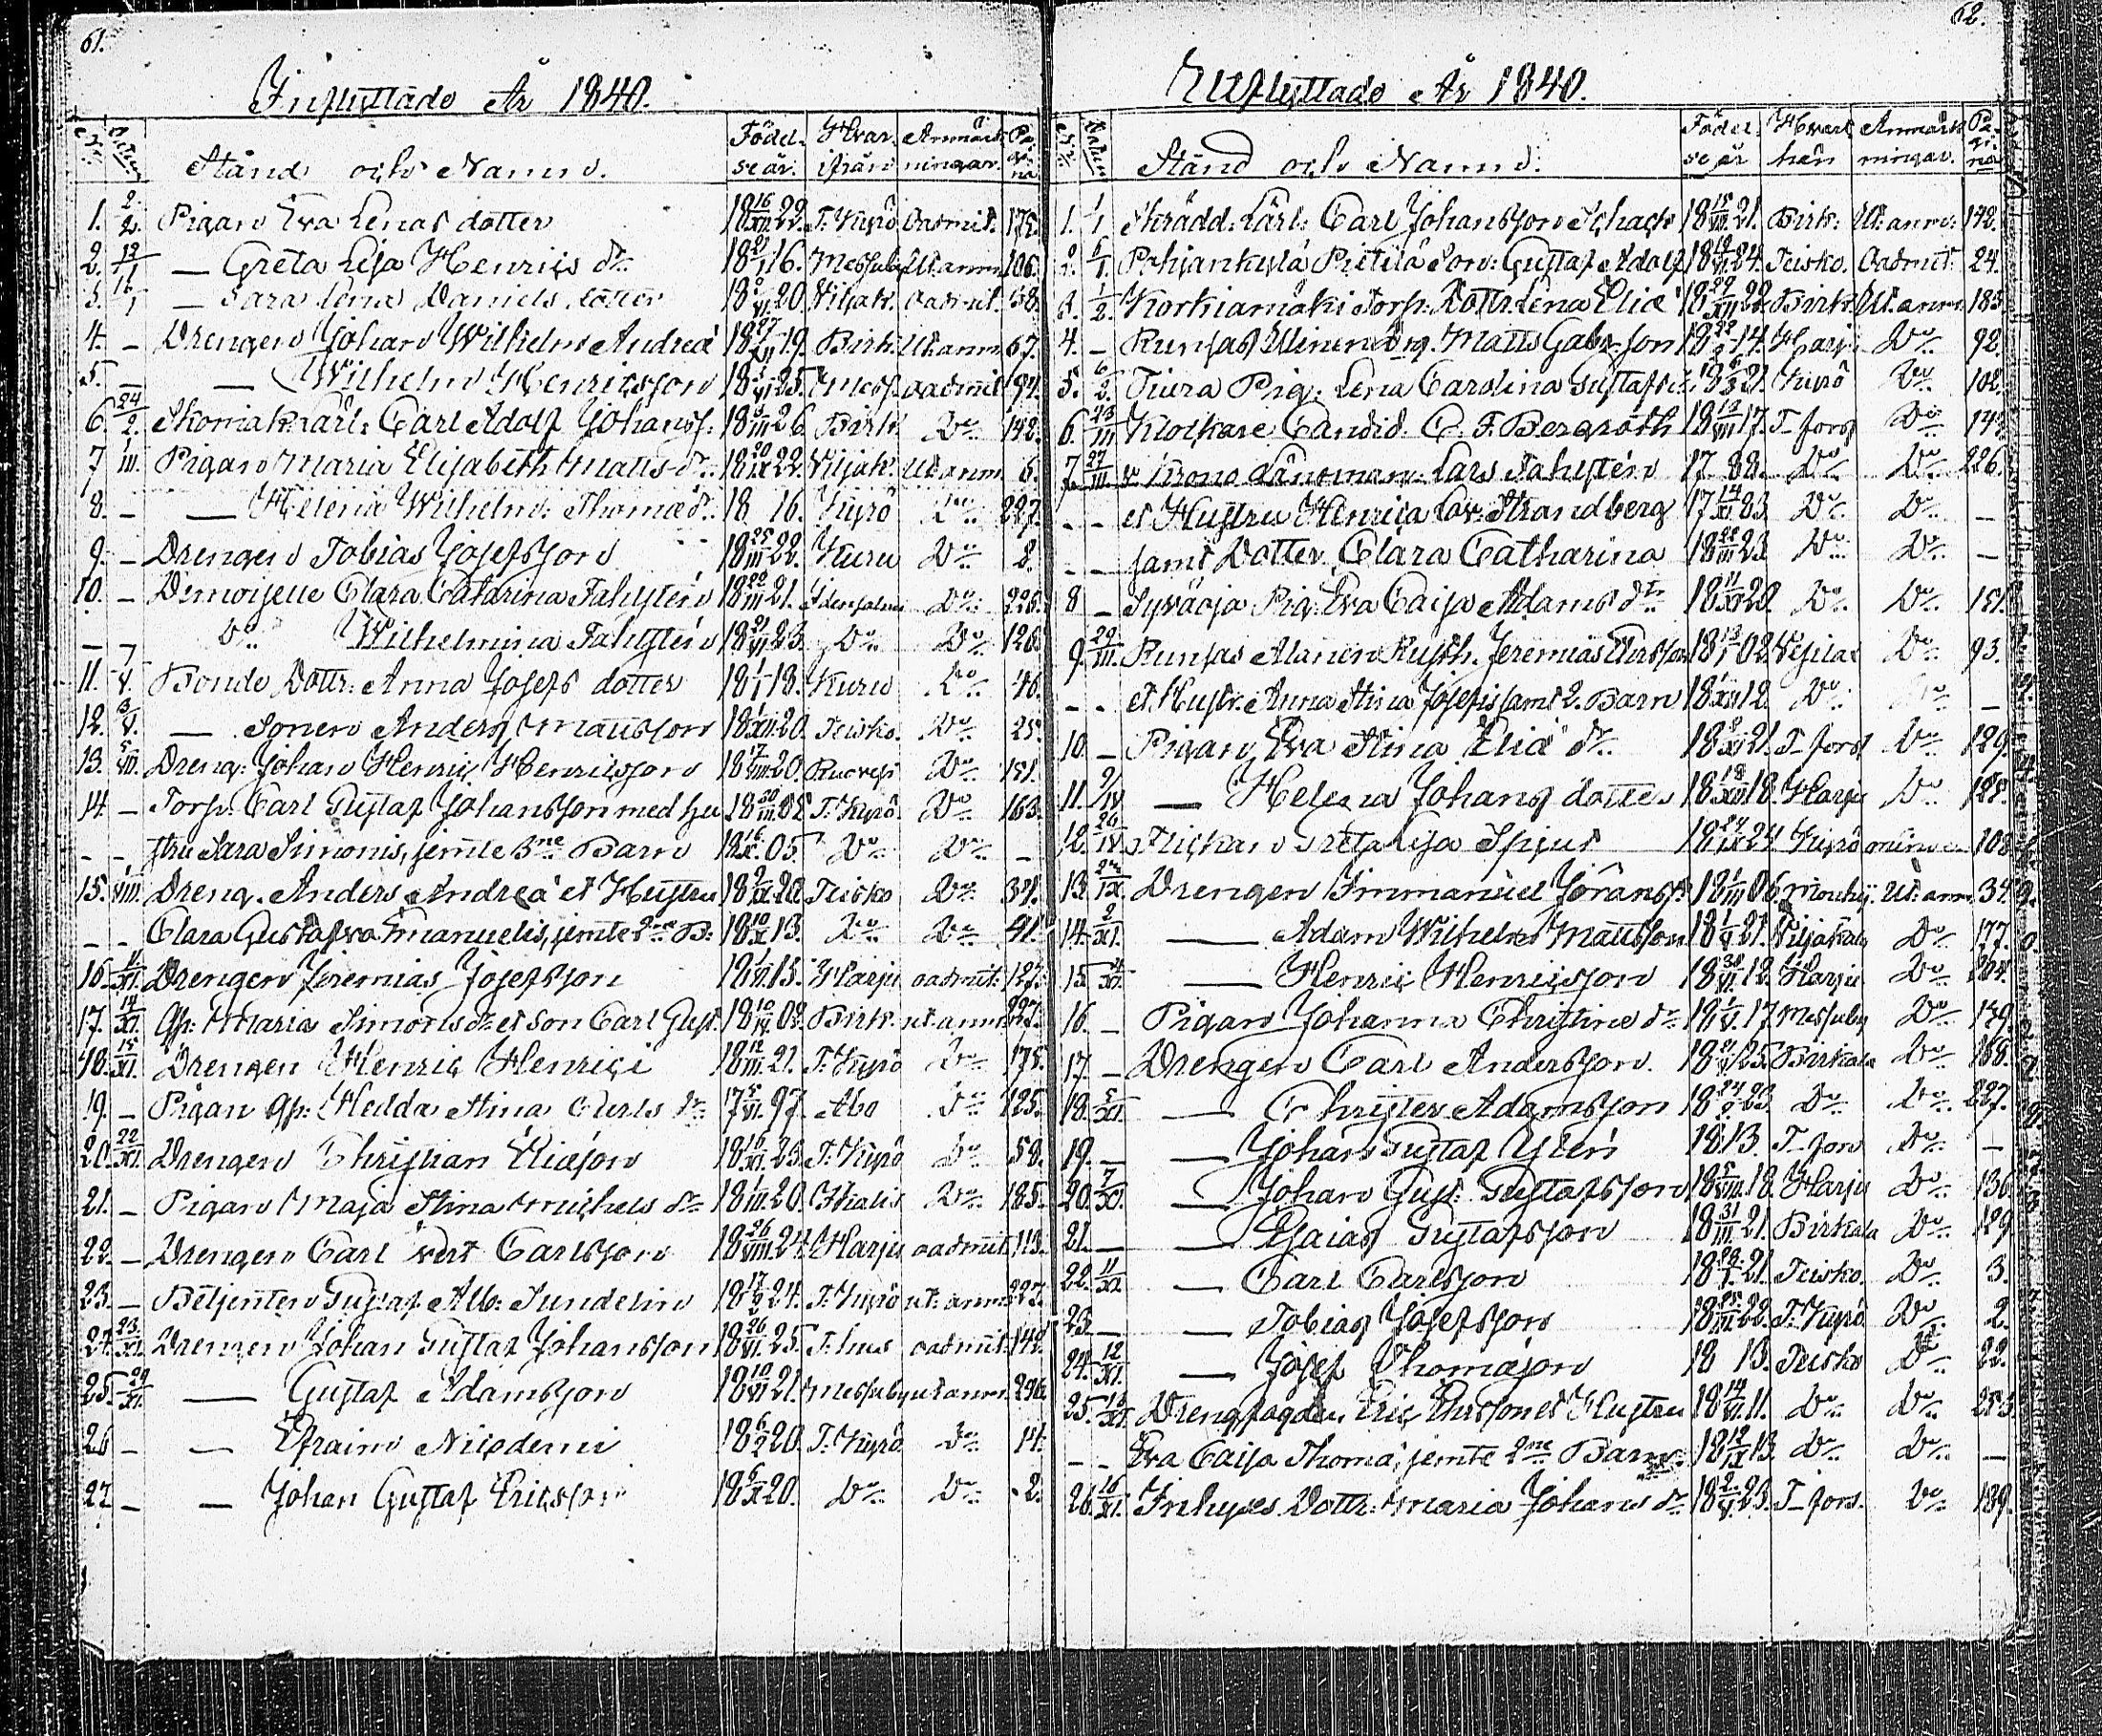 61.
Inflyttade År 1840.
N:r Datum Stånd och Namn. Födelse år. Hvar ifrån Anmärkningar. Pagina
1. 2/2. Pigan Eva Lenas dotter 18 16/XII 22. T. Kyro oadmit. 175.
2. 12/1 — Greta Lisa Henrics dr. 18 21/1 16. Messuby Ut. anm. 106.
3. 16/1 — Sara Lena Daniels dotter 20. Viljak. oadmit. 58.
4. – Drengen Johan Wilhelm Andreæ 18 27/XII 19. Birk. Ut anm. 67.
5. – — Wilhelm Henricsson 25. Mess. oadmit. 94.
6. 24/2. Skomak. Lärl: Carl Adolf Johanss. 18 III 26. Birk. Do. 142.
7 III. Pigan Maria Elisabeth Matts dr. 18 20/IX 22. Viljak. Ut anm. 6.
8. – — Helena Wilhelm: Thomæ dr. 18 16. Kyrö Do. 227.
9. – Drengen Tobias Josefsson 18 25/III 22. Kuru Do. 2.
10. – Demoiselle Clara Catarina Fahlstén 18 22/III 21. Idensalmi Do. 226.
– Do. Wilhelmina Fahlstén 18 21/VI 23. Do. Do. 126.
11. 7/V. Bonde Dottr. Anna Josefs dotter 18 1/1 18. Kuru Do. 46.
12. 3/V. — Sonen Anders Mattsson 18 XII 20. Teisko. Do. 25.
13. 5/VII. Dreng. Johan Henric Henricsson 18 17/VIII 20. Ruovesi Do. 151.
14 – Torp. Carl Gustaf Johansson med hu 18 30/III 02 T. Kyrö. Do. 163.
– – stru Sara Simonis, jemte 3ne Barn 18 16/X. 05 Do. Do. –
15. VIII. Dreng. Anders Andreæ et Hustru 18 2/IX 20. Teisko Do.
– – Clara Gustafva Emanuelis, jemte 2ne B. 18 10/X 13. Do. Do. 41.
16. 11/XI. Drengen Jeremias Josefsson 18 1/VI 15. Harju oadmit. 127.
17. 14/XI. Maria Simons dr et son Carl Gust. 18 10/IV 02. Birk. ut. anm. 227.
18. 15/XI. Drengen Henric Henrici 18 12/III 21. T. Kyrö Do. 175.
19. – Pigan Hedda Stina dr. 17 5/VI. 97. Abo Do. 125.
20. 22/XI. Drengen Christian Eliæson 18 16/XI. 23. T. Kyrö Do. 59.
21. – Pigan Maja Stina Michels dr. 18 1/III 20. Ikalis Do. 185.
22. – Drengen Carl Carlsson 18 26/VIII 24. Harju oadmit. 113.
23. – Betjenten Gustaf Alb. Sundelin 18 17/9 24. T. Kyrö ut. anm. 227.
24. 23/XI. Drengen Johan Gustaf Johansson 18 26/VI. 25. T. hus oadmit. 142.
25. 29/XI. — Gustaf Adamsson 18 10/VI 21. Messuby ut anm.
26 – — Efraim Nicodemi 18 6/2 20. T. Kyrö Do. 14.
27. – — Johan Gustaf Ericsson 18 6/XI 20. Do. Do. 2.
62.
Utflyttade År 1840.
N:r Datum Stånd och Namn. Födelse år Hvart hän Anmärkningar. Pagina
1. 1/1 Skrädd: Lärl: Carl Johansson Schack 18 18/VIII 21. Birk: Ut. anm: 142.
2. 6/1. Pohjankylä Pietilä Son: Gustaf Adolf 18 19/VI 24. Teisko. Oadmit. 24.
3. 1/2. Korkiamäki Torp. Dottr. Lena Eliæ 18 29/XII 22 Birk. Ut. anm. 183.
4. – Runsas Uinen drg. Matts Gabr.son 18 22/2 14. Harj. Do. 92.
5. 6/2. Tiura Pig. Lena Carolina Gustafs dr. 21. Kyrö Do. 102.
6. 23/III Klockare Candid. C. F. Bergroth 18 12/VIII 17. T-fors Do.
7. 27/III v Krono Länsman. Lars Fahlstén 17 88. Do. Do. 226.
– – et Hustru Henrica Lov: Strandberg 17 14/XI 83 Do. Do. –
– – samt Dotter Clara Catharina 18 22/III 23. Do. Do. –
8 – Syväoja Pig. Eva Caisa Adams dr. 18 11/XI 20. Do. Do. 151.
9. 29/III. Runsas Alanen Jeremias 18 13/1 02. Vesilax Do. 93.
– – et Hustr. Anna Stina Josefs samt 2. Barn 18 XII 12. Do. –
10. – Pigan Eva Stina Eliæ dr. 18 2/XI 21. T-fors Do. 129.
11. 9/IV — Helena Johans dotter 18 18/XII 18. Harju Do. 128.
12. 26/IV Flickan Greta Lisa Spjut 18 24/IX 24 Kyrö 108
13. IX. Drengen Immanuel Jöranss. 18 1/III 06. Mouhij. Ut. anm. 34.
14. 2/XI. — Adam Wilhelm Mattsson 18 1/V 21. Viljakala Do. 177.
15. 4/XI. — Henric Henricsson 18 30/VI. 12. Harju Do. 204.
16. – Pigan Johanna Christina dr. 18 1/V. 17. Messuby Do. 139.
17. – Drengen Carl Andersson. 25. Birkala Do. 158.
18. 5/XI. — Christer Adamsson 18 24/2 23. Do. Do. 227.
19. – — Johan Gustaf Ylén 18 13. T-fors Do. –
20. 7/XI. — Johan Gust. Gustafsson 18 5/VIII. 18. Harju Do. 136.
21. – — Esaias Gustafsson 18 31/III 21. Birkala Do. 129.
22. 11/XI. — Carl Carlsson 21. Teisko. Do. 3.
23. – — Tobias Josefsson 18 25/III. 22. T. Kyrö Do. 2.
24. 12/XI. — Josef Thomæson 18 13. Teisko Do. 22.
25. 13/XI. Drengfogden Eric Ericsson et Hustru 18 14/VI. 11. Do. Do. 253.
– – Eva Caisa Thomæ, jemte 2ne Barn. 18 12/IX 13. Do. Do. –
26. 16/XI. Inhyses Dottr: Maria Johans dr. 18 2/V. 23. T-fors. Do. 189.